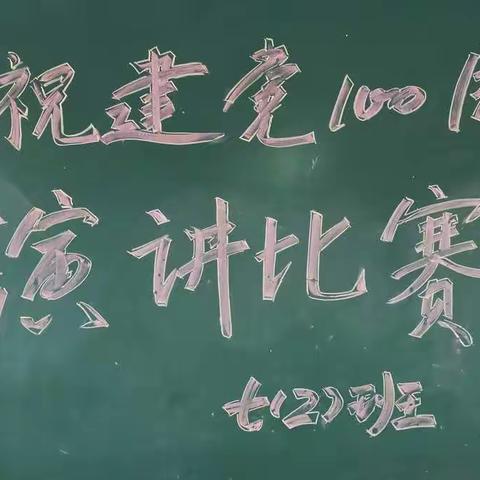 祝建党100周
演讲比赛
七(2)班